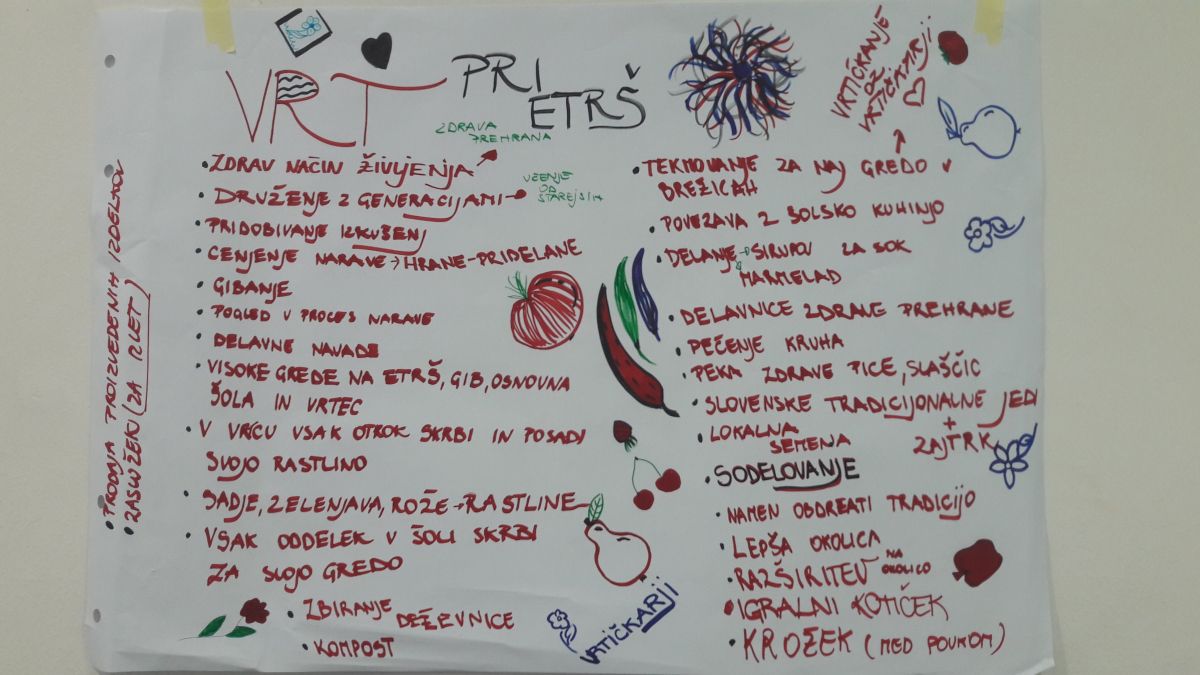 VRT PRI
ETRŠ
VRTIČKANJE
OZ.
VRTIČKARJI
ZDRAVA
PREHRANA
• ZDRAV NAČIN ŽIVLJENJA
• DRUŽENJE Z GENERACIJAMI
UČENJE
OD
STAREJŠIH
• PRIDOBIVANJE IZKUŠENJ
• CENJENJE NARAVE → HRANE - PRIDELANE
• GIBANJE
• POGLED V PROCES NARAVE
• DELAVNE NAVADE
• VISOKE GREDE NA ETRŠ, GIB, OSNOVNA
ŠOLA IN VRTEC
• V VRTCU VSAK OTROK SKRBI IN POSADI
SVOJO RASTLINO
• SADJE, ZELENJAVA, ROŽE → RASTLINE
• VSAK ODDELEK V ŠOLI SKRBI
ZA SVOJO GREDO
• ZBIRANJE DEŽEVNICE
• KOMPOST
VRTIČKARJI
• PRODAJA PROIZVEDENIH IZDELKOV
• ZASLUŽENJ (ZA IZLET)
• TEKMOVANJE ZA NAJ GREDO V
BREŽICAH
• POVEZAVA Z ŠOLSKO KUHINJO
• DELANJE → SIRUPOV ZA SOK
MARMELAD
• DELAVNICE ZDRAVE PREHRANE
• PEČENJE KRUHA
• PEKA ZDRAVE PICE, SLAŠČIC
• SLOVENSKE TRADICIJONALNE JEDI
+
ZAJTRK
• LOKALNA
SEMENA
• SODELOVANJE
• NAMEN OBDRŽATI TRADICIJO
• LEPŠA OKOLICA
• RAZŠIRITEV NA
OKOLICO
• IGRALNI KOTIČEK
• KROŽEK (MED POUKOM)